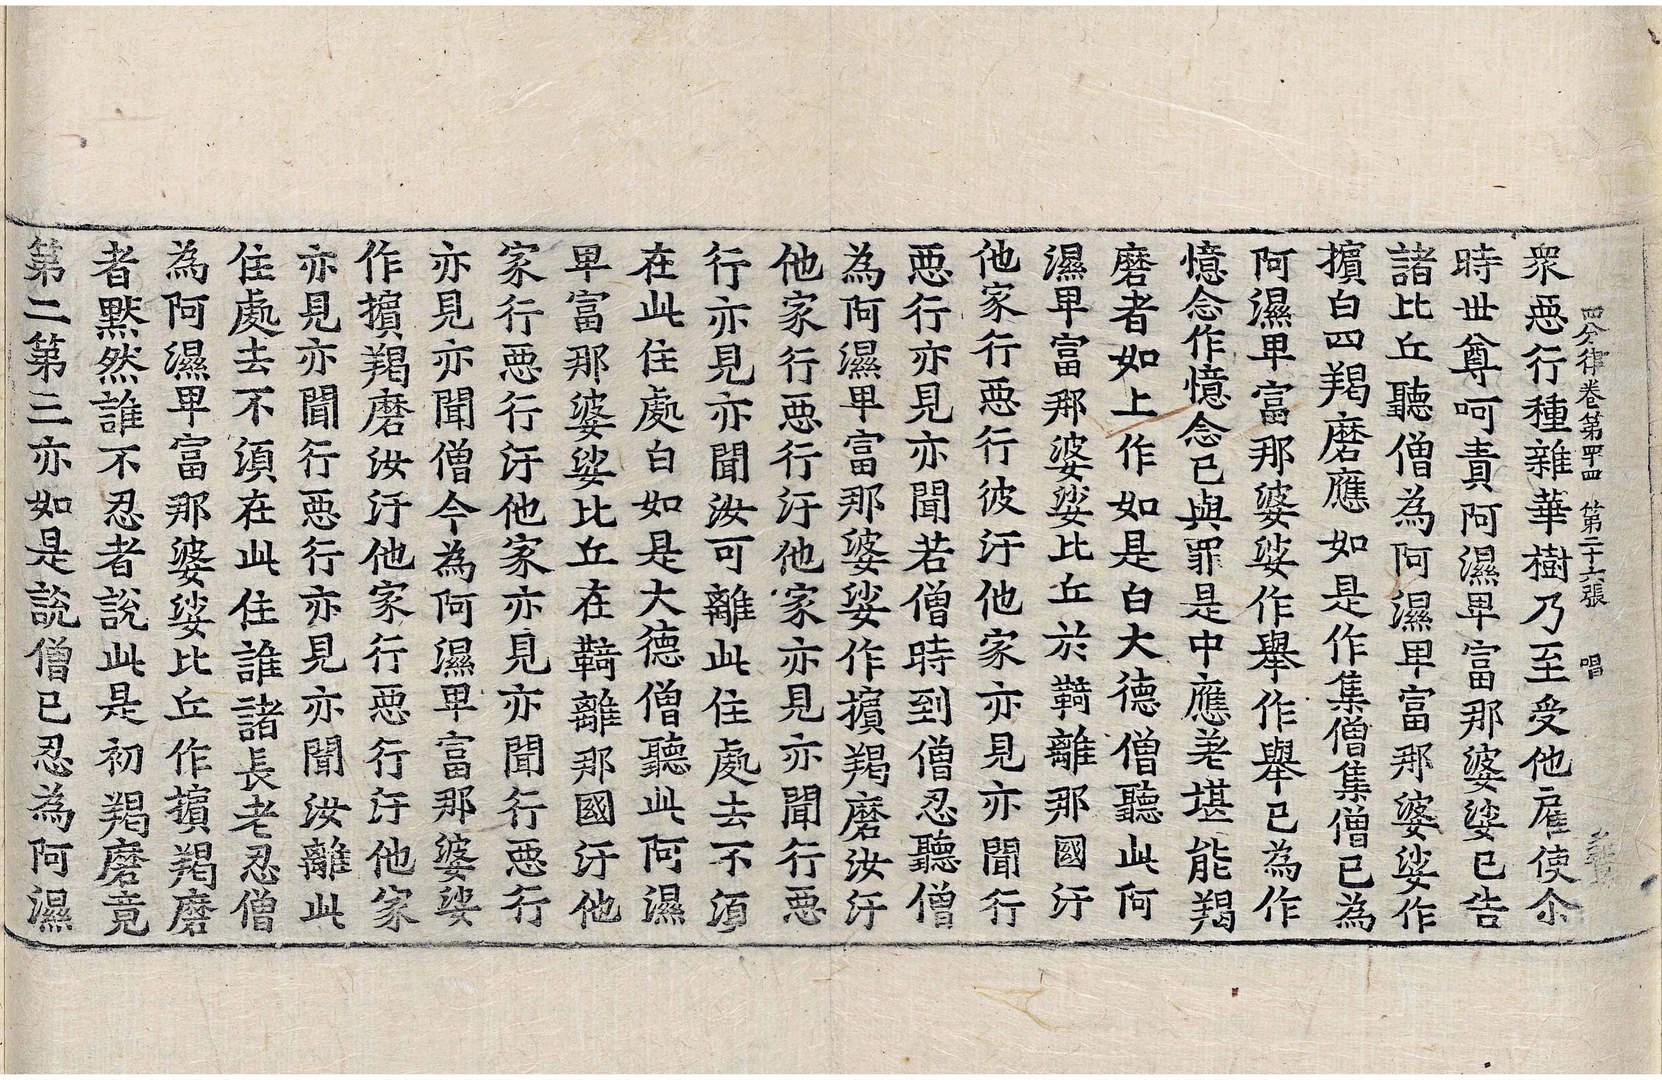 四分律卷第四十四 第二十六張 唱
衆惡行種雜華樹乃至受他雇使尒
時世尊呵責阿濕卑富那婆娑已告
諸比丘聽僧為阿濕卑富那婆娑作
擯白四羯磨應如是作集僧集僧已為
阿濕卑富那婆娑作舉作舉已為作
憶念作憶念已與罪是中應差堪能羯
磨者如上作如是白大德僧聽此阿
濕卑富那婆娑比丘於鞊離那國汙
他家行惡行彼汙他家亦見亦聞行
惡行亦見亦聞若僧時到僧忍聽僧
為阿濕卑富那婆娑作擯羯磨汝汙
他家行惡行汙他家亦見亦聞行惡
行亦見亦聞汝可離此住處去不須
在此住處白如是大德僧聽此阿濕
卑富那婆娑比丘在鞊離那國汙他
家行惡行汙他家亦見亦聞行惡行
亦見亦聞僧今為阿濕卑富那婆娑
作擯羯磨汝汙他家行惡行汙他家
亦見亦聞行惡行亦見亦聞汝離此
住處去不須在此住誰諸長老忍僧
為阿濕卑富那婆娑比丘作擯羯磨
者默然誰不忍者說此是初羯磨竟
第二第三亦如是說僧已忍為阿濕